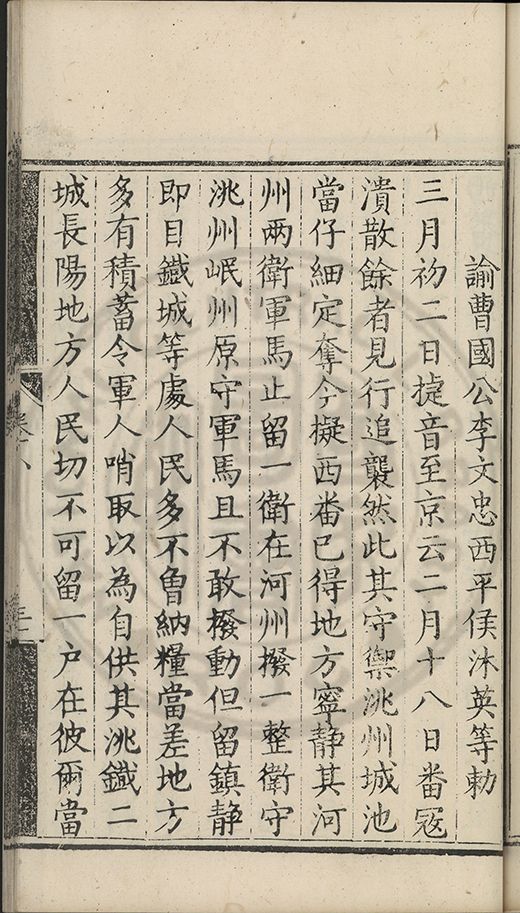 諭曹國公李文忠西平侯沐英等勅
三月初二日㨗音至京云二月十八日番冦
潰散餘者見行追襲然此其守禦洮州城池
當仔細定奪今擬西番已得地方寧静其河
州兩衛軍馬止留一衛在河州撥一整衛守
洮州岷州原守軍馬且不敢撥動但留鎮静
即目鐵城等處人民多不魯納糧當差地方
多有積蓄令軍人哨取以為自供其洮鐵二
城長陽地方人民切不可留一户在彼爾當